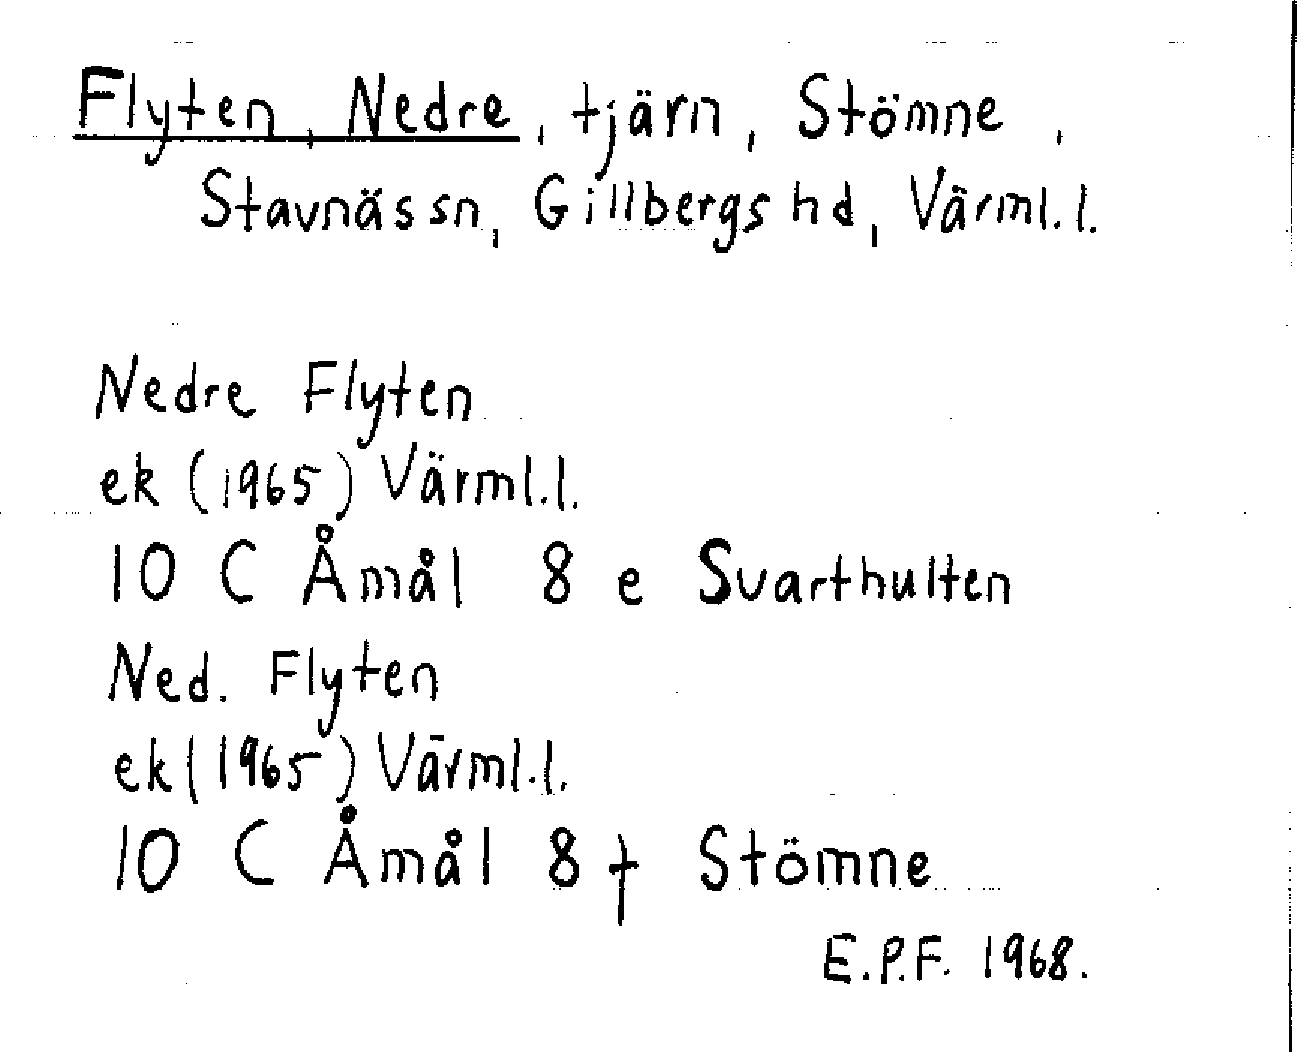 Flyten, Nedre, tjärn, Stömne,
Stavnäs sn, Gillbergs hd, Värml. l.
Nedre Flyten
ek (1965) Värml. l.
10 C Åmål 8 e Svarthulten
Ned. Flyten
ek (1965) Värml. l.
10 C Åmål 8 f Stömne
E.P.F. 1968.